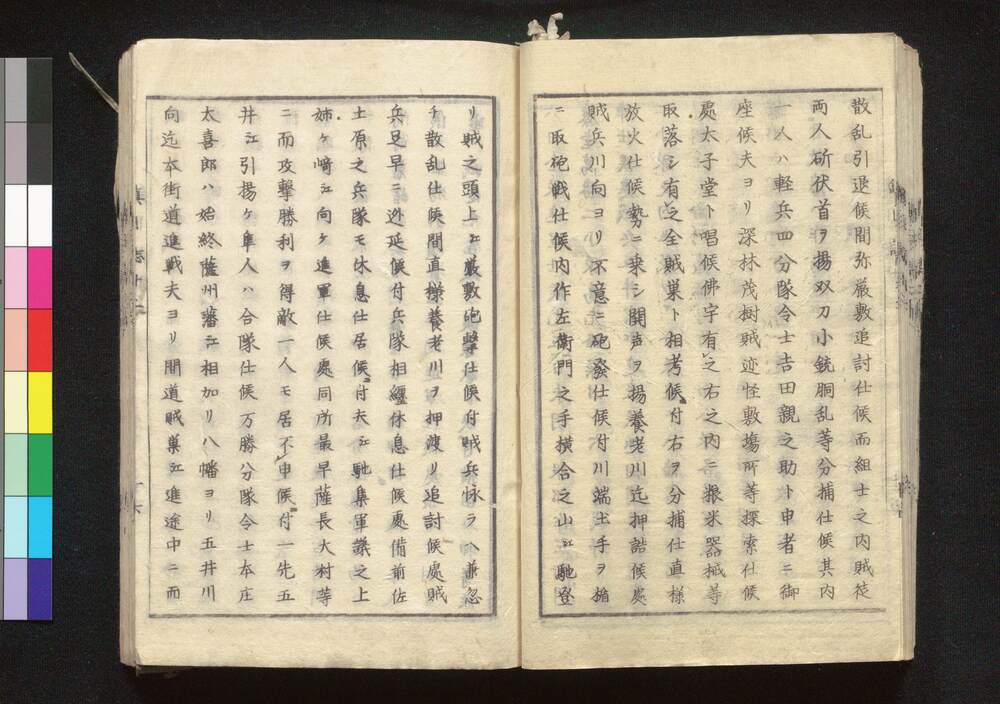 散乱引退候間弥厳敷追討仕候而組士之内賊徒
両人斫伏首ヲ揚双刀小銃胴乱等分捕仕候其内
一人ハ軽兵四分隊令士吉田親之助ト申者ニ御
座候夫ヨリ深林茂樹賊迹怪敷場所等探索仕候
處太子堂ト唱候佛宇有之右之内ニ粮米器械等
取落シ有之全賊巣ト相考候付右ヲ分捕仕直様
放火仕候勢ニ乗シ閧声ヲ揚養老川迄押詰候處
賊兵川向ヨリ不意ニ砲發仕候付川端土手ヲ楯
ニ取砲戦仕候内作左衛門之手横合之山江馳登
リ賊之頭上江厳敷砲撃仕候付賊兵怺ラヘ兼忽
チ散乱仕候間直様養老川ヲ押渡リ追討候處賊
兵足早ニ迯延候付兵隊相纒休息仕候處備前佐
土原之兵隊モ休息仕居候付夫江馳集軍議之上
姉ヶ崎江向ケ進軍仕候處同所最早薩長大村等
ニ而攻撃勝利ヲ得敵一人モ居不申候付一先五
井江引揚ケ隼人ハ合隊仕候万勝分隊令士本庄
太喜郎ハ始終薩州藩江相加リ八幡ヨリ五井川
向迄本街道進戦夫ヨリ間道賊巣江進途中ニ而